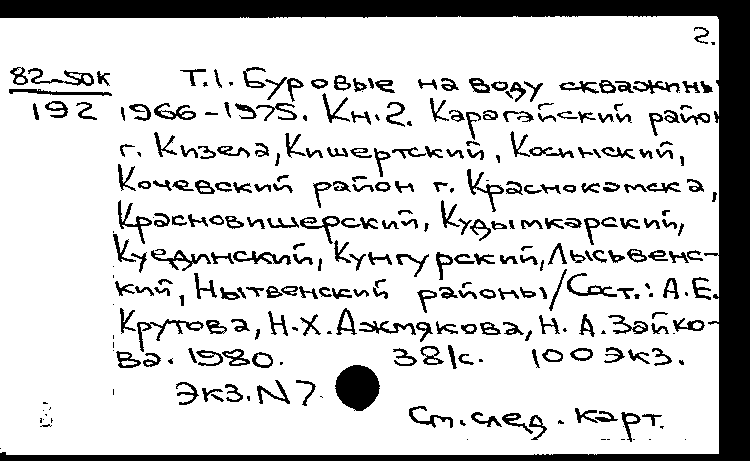 2.
82-50К Т.1. Буровые на воду скважины
192 1966-1975. Кн.2. Карагайский район
г. Кизела, Кишертский, Косинский,
Кочевский район г. Краснокамска,
Красновишерский, Кудымкарский,
Куединский, Кунгурский, Лысьвенс-
кий, Нытвенский районы/Сост.: А.Е.
Крутова, Н.Х. Ажмякова, Н.А. Зайко-
ва. 1980. 381с. 100 экз.
Экз. N 7
См. след. карт.